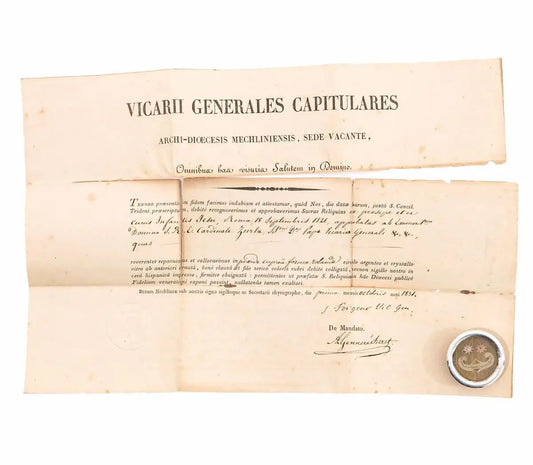 VICARII GENERALES CAPITULARES
ARCHI-DIOECESIS MECHLINIENSIS, SEDE VACANTE,
Omnibus has visuris Salutem in Domino.
Tenore præsentium fidem facimus indubiam et attestamur, quod Nos, die data harum, juxta S. Concil.
Trident præscriptum, debitè recognoverimus et approbaverimus Sacras Reliquias ex præsepe et ex
cunis Infantis Jesu, Roma 18 Septembris 1821, approbatas ab
Domino Cardinale Zurla Papæ Vicario Generali &c. &c.
quas
reverenter reposuimus et collocavimus in formâ rotundâ, vitro argenteo et crystallo
vitro ab anteriori munitâ, benè clausâ et filo serico coloris rubri debitè colligatâ, nostro in
cerâ hispanicâ impresso, firmiter obsignatâ: permittentes ut præfatæ S. Reliquiæ in hâc Dioecesi publicè
Fidelium venerationi exponi possint, nullatenùs tamen exaltari.
Datum Mechliniæ sub nostris signo sigilloque ac Secretarii chyrographo, die prima mensis octobris 1831.
Vic Gen.
De Mandato,